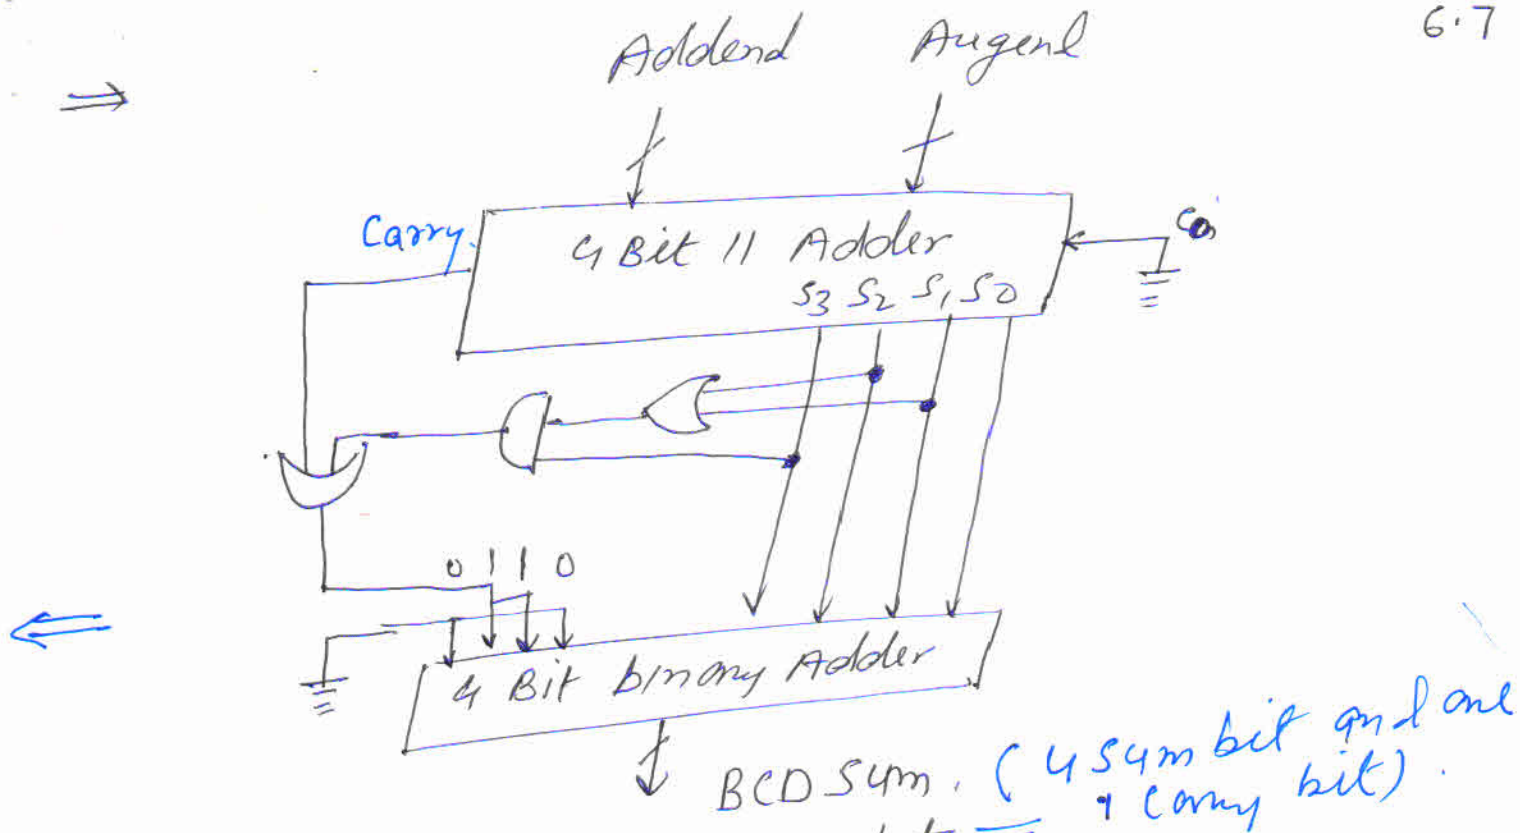 6.7
Addend Augend
Carry.
4 Bit 11 Adder
S3 S2 S1 S0
0 1 1 0
4 Bit binary Adder
BCD Sum. (4 sum bit and one
carry bit).